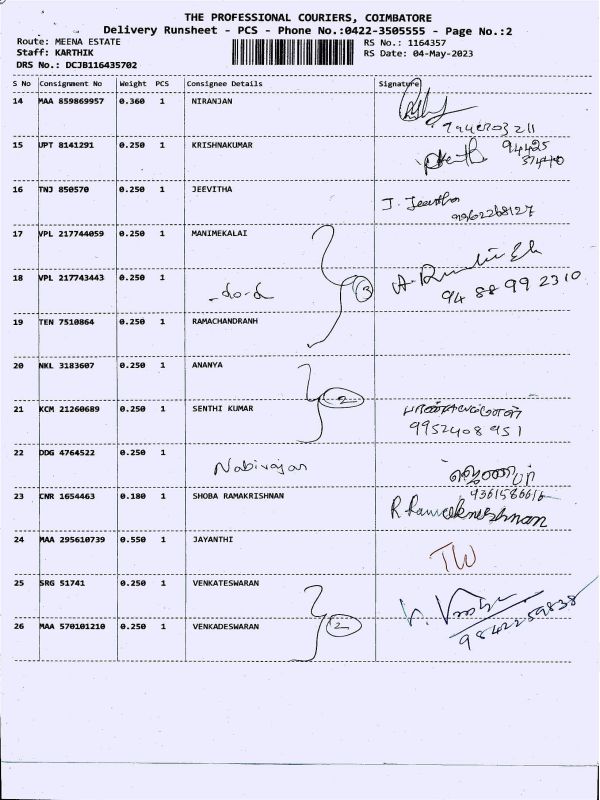 THE PROFESSIONAL COURIERS, COIMBATORE
Delivery Runsheet - PCS - Phone No.:0422-3505555 - Page No.:2
Route: MEENA ESTATE
Staff: KARTHIK
DRS No.: DCJB116435702
RS No.: 1164357
RS Date: 04-May-2023
S No Consignment No Weight PCS Consignee Details Signature
14 MAA 859869957 0.360 1 NIRANJAN
15 UPT 8141291 0.250 1 KRISHNAKUMAR 94425
16 TNJ 850570 0.250 1 JEEVITHA J. Jeevitha
9962268127
17 VPL 217744059 0.250 1 MANIMEKALAI
18 VPL 217743443 0.250 1 -do-d 3
94 88 99 2310
19 TEN 7510864 0.250 1 RAMACHANDRANH
20 NKL 3183607 0.250 1 ANANYA 2
21 KCM 21260689 0.250 1 SENTHI KUMAR
9952408951
22 DDG 4764522 0.250 1 Nabirajan
9361586616
23 CNR 1654463 0.180 1 SHOBA RAMAKRISHNAN R. Ramakrishnan
24 MAA 295610739 0.550 1 JAYANTHI TW
25 SRG 51741 0.250 1 VENKATESWARAN
26 MAA 570101210 0.250 1 VENKADESWARAN 2 9842259838